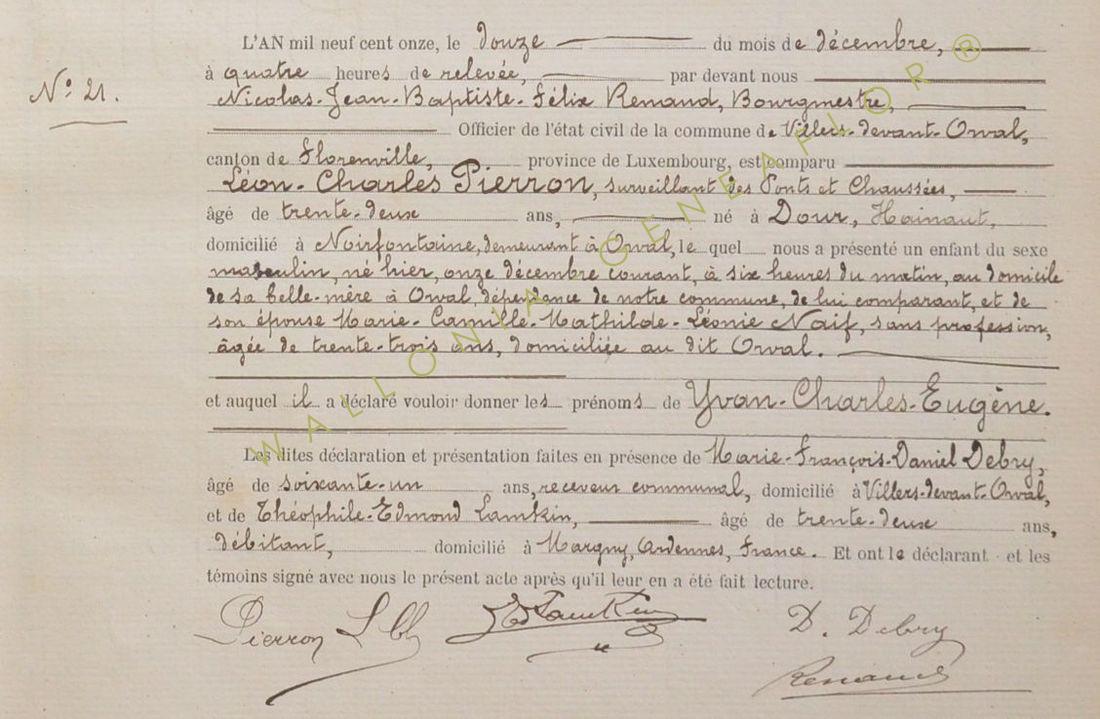 L'AN mil neuf cent onze, le douze du mois de décembre,
N° 21.
à quatre heures de relevée, par devant nous
Nicolas-Jean-Baptiste-Félix Renaud, Bourgmestre,
Officier de l'état civil de la commune de Villers-devant-Orval,
canton de Florenville, province de Luxembourg, est comparu
Léon-Charles Pierron, surveillant des Ponts et Chaussées,
âgé de trente-deux ans, né à Dour, Hainaut,
domicilié à Noirfontaine, demeurant à Orval, le quel nous a présenté un enfant du sexe
masculin, né hier, onze décembre courant, à six heures du matin, au domicile
de sa belle-mère à Orval, dépendance de notre commune, de lui comparant, et de
son épouse Marie-Camille-Mathilde-Léonie Naif, sans profession,
âgée de trente-trois ans, domiciliée au dit Orval.
et auquel il a déclaré vouloir donner les prénoms de Yvan-Charles-Eugène.
Les dites déclaration et présentation faites en présence de Marie-François-Daniel Debry,
âgé de soixante-un ans, receveur communal, domicilié à Villers-devant-Orval,
et de Théophile-Edmond Lamkin, âgé de trente-deux ans,
débitant, domicilié à Margny, Ardennes, France. Et ont le déclarant et les
témoins signé avec nous le présent acte après qu'il leur en a été fait lecture.
Pierron D. Debry
Renaud
WALLONIA GENEAFIOR ®